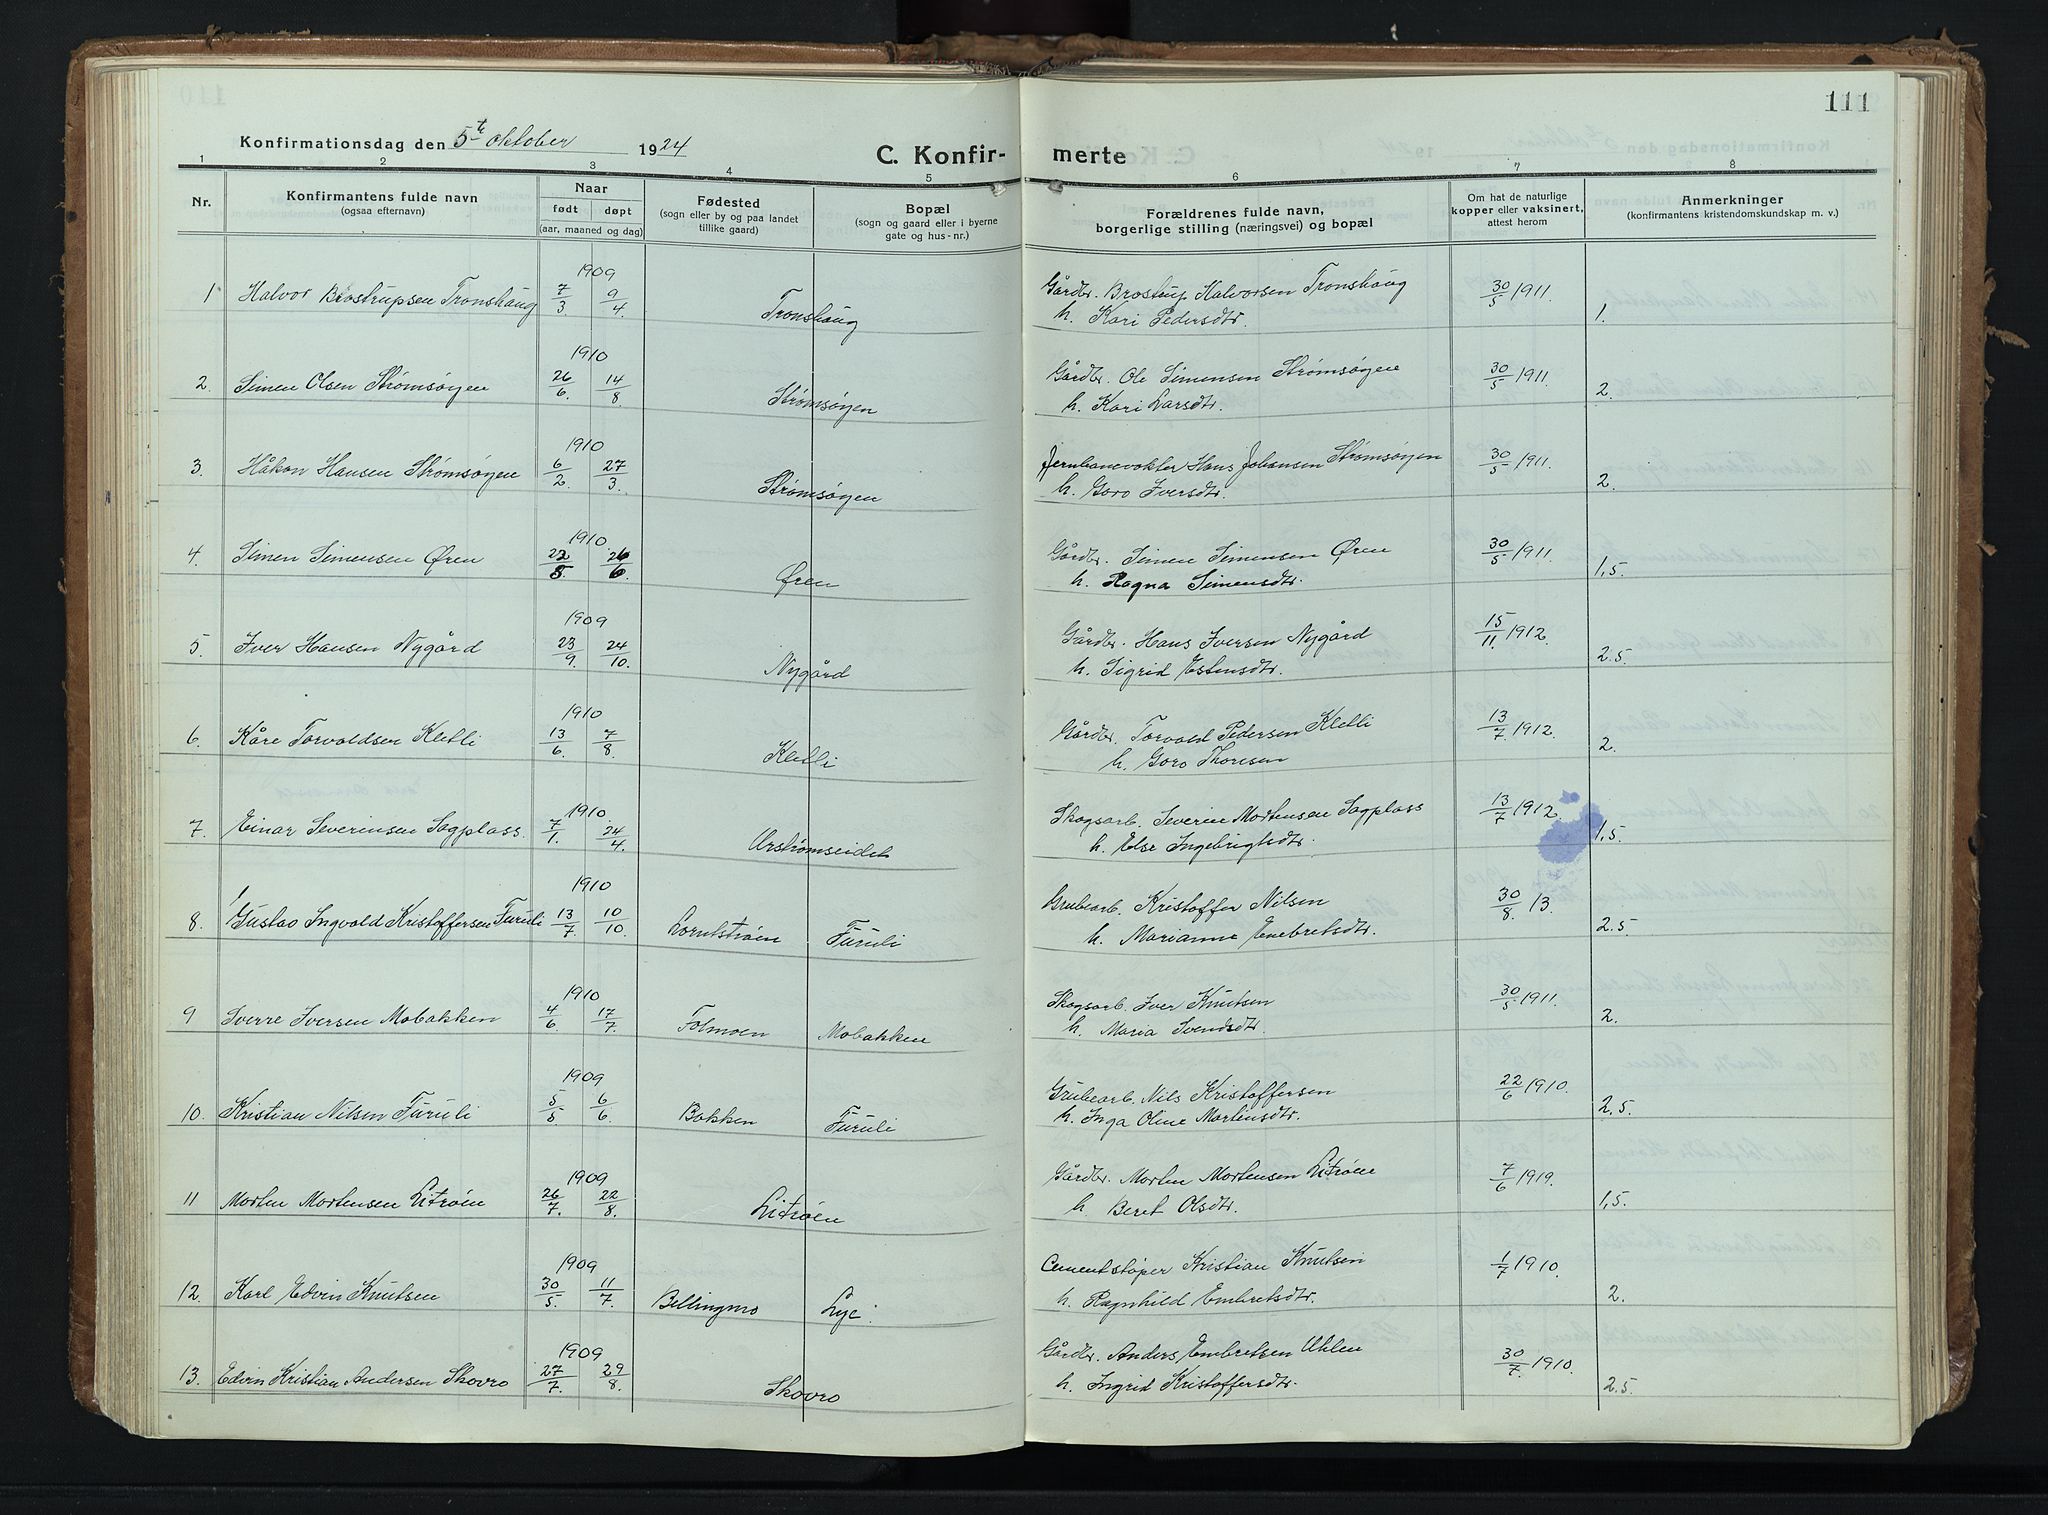 111
Konfirmationsdag den 5te oktober 1924
C. Konfir- merte
1 2 3 4 5 6 7 8
Nr. Konfirmantens fulde navn (ogsaa efternavn) Naar født døpt (aar, maaned og dag) Fødested (sogn eller by og paa landet tillike gaard) Bopæl (sogn og gaard eller i byerne gate og hus-nr.) Forældrenes fulde navn, borgerlige stilling (næringsvei) og bopæl Om hat de naturlige kopper eller vaksinert, attest herom Anmerkninger (konfirmantens kristendomskundskap m. v.)
1909
1 Halvor Brostrupsen Tronshaug 7/3 9/4 Tronshaug Gårdbr. Brostrup Halvorsen Tronshaug 30/5 1911. 1.
h. Kari Pedersdtr.
1910
2. Simen Olsen Strømsøyen 26/6. 14/8 Strømsøyen Gårdbr. Ole Simensen Strømsøyen 30/5 1911. 2.
h. Kari Larsdtr.
1910
3. Håkon Hansen Strømsøyen 6/2. 27/3. Strømsøyen Jernbanevokter Hans Johansen Strømsøyen 30/5 1911. 2.
h. Goro Iversdtr.
1910
4. Simen Simensen Øren 22/5. 26/6. Øren Gårdbr. Simen Simensen Øren 30/5 1911. 1,5.
h. Ragna Simensdtr.
1909
5. Iver Hansen Nygård 23/9. 24/10. Nygård Gårdbr. Hans Iversen Nygård 15/11 1912. 2.5.
h. Sigrid Estensdtr.
1910
6. Kåre Torvaldsen Kletli 13/6 7/8 Kletli Gårdbr. Torvald Pedersen Kletli 13/7 1912. 2.
h. Goro Thoresen
1910.
7. Einar Severinsen Sagplass. 7/1. 24/4 Urstrømseidet Skogsarb. Severin Mortensen Sagplass 13/7 1912 1,5.
h. Else Ingebrigtsdtr.
1910
8. Gustav Ingvald Kristoffersen Furuli 13/7 10/10. Furuli Grubearb. Kristoffer Nilsen 30/8. 13. 2.5.
h. Marianne Enebretsdtr.
1910
9 Sverre Iversen Mobakken 4/6 17/7. Folmoen Mobakken Skogsarb. Iver Knutsen 30/5 1911. 2.
h. Maria Svendsdtr.
1909
10. Kristian Nilsen Furuli 5/5 6/6 Bakken Furuli Grubearb. Nils Kristoffersen 22/6 1910. 2,5.
h. Inga Oline Mortensdtr.
1909
11 Morten Mortensen Litrøen 26/7. 22/8. Litrøen Gårdbr. Morten Mortensen Litrøen 7/6 1919. 1,5.
h Beret Olsdtr.
1909
12. Karl Edvin Knutsen 30/5. 11/7. Bellingmo Lye. Cementstøper Kristian Knutsen 1/7 1910. 2.
h. Ragnhild Embretsdtr.
1909
13. Edvin Kristian Andersen Skovro 27/7. 29/8. Skovro Gårdbr. Anders Embretsen Uhlen 30/7. 1910. 2.5.
h. Ingrid Kristoffersdtr.